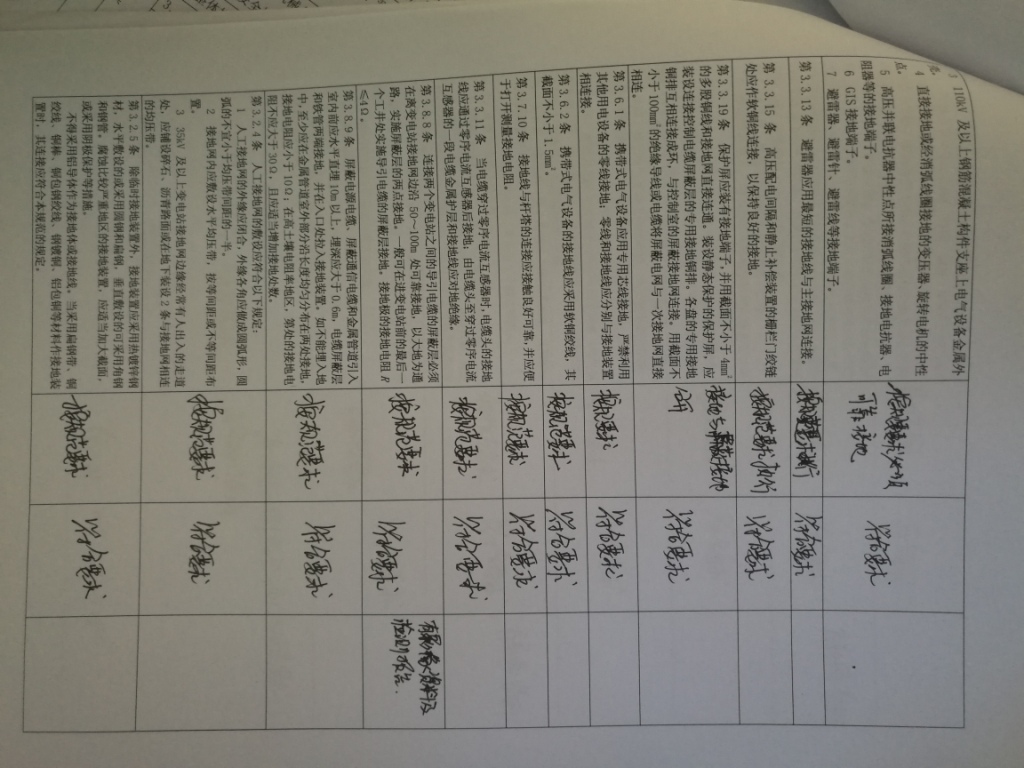 3 110kV 及以上钢筋混凝土构件支座上电气设备金属外
壳。
4 直接接地或经消弧线圈接地的变压器、旋转电机的中性
点。
5 高压并联电抗器中性点所接消弧线圈、接地电抗器、电
阻器等的接地端子。
6 GIS 接地端子。
7 避雷器、避雷针、避雷线等接地端子。
可靠接地
符合要求
第 3.3.13 条 避雷器应用最短的接地线与主接地网连接。
符合要求
第 3.3.15 条 高压配电间隔和静止补偿装置的栅栏门铰链
处应作软铜线连接，以保持良好的接地。
按规范要求
符合要求
第 3.3.19 条 保护屏应装有接地端子，并用截面不小于 4mm²
的多股铜线和接地网直接连通。装设静态保护的保护屏，应
装设连接控制电缆屏蔽层的专用接地铜排。各盘的专用接地
铜排互相连接成环，与控制室的屏蔽接地网连接。用截面不
小于 100mm² 的绝缘导线或电缆将屏蔽电网与一次接地网直接
相连。
符合要求
第 3.6.1 条 携带式电气设备应用专用芯线接地，严禁利用
其他用电设备的零线接地；零线和接地线应分别与接地装置
相连接。
按规范要求
符合要求
第 3.6.2 条 携带式电气设备的接地线应采用软铜绞线，其
截面不小于 1.5mm²。
按规范要求
符合要求
第 3.7.10 条 接地线与杆塔的连接应接触良好可靠，并应便
于打开测量接地电阻。
按规范要求
符合要求
第 3.3.11 条 当电缆穿过零序电流互感器时，电缆头的接地
线应通过零序电流互感器后接地；由电缆头至穿过零序电流
互感器的一段电缆金属护层和接地线应对地绝缘。
按规范要求
符合要求
第 3.8.8 条 连接两个变电站之间的导引电缆的屏蔽层必须
在离变电站接地网边沿 50～100m 处可靠接地，以大地为通
路，实施屏蔽层的两点接地。一般可在进变电站前的最后一
个工井处实施导引电缆的屏蔽层接地。接地极的接地电阻 R
≤4Ω。
按规范要求
符合要求
检测报告.
第 3.8.9 条 屏蔽电源电缆、屏蔽通信电缆和金属管道引入
室内前应水平直埋 10m 以上，埋深应大于 0.6m，电缆屏蔽层
和铁管两端接地，并在入口处接入接地装置。如不能埋入地
中，至少应在金属管道室外部分沿长度均匀分布在两处接地，
接地电阻应小于 10Ω；在高土壤电阻率地区，第处的接地电
阻不应大于 30Ω，且应适当增加接地处数。
按规范要求
符合要求
第3.2.4条 人工接地网的敷设应符合以下规定：
1 人工接地网的外缘应闭合，外缘各角应做成圆弧形，圆
弧的不宜小于均压带间距的一半。
2 接地网内应敷设水平均压带，按等间距或不等间距布
置。
3 35kV 及以上变电站接地网边缘经常有人出入的走道
处，应铺设碎石、沥青路面或在地下装设 2 条与接地网相连
的均压带。
按规范要求
符合要求
第 3.2.5 条 除临时接地装置外，接地装置应采用热镀锌钢
材，水平敷设的或采用圆钢和扁钢，垂直敷设的可采用角钢
和钢管。腐蚀比较严重地区的接地装置，应适当加大截面，
或采用阴极保护等措施。
不得采用铝导体作为接地体或接地线。当采用扁铜带、铜
绞线、铜棒、铜包钢绞线、钢镀铜、铅包铜等材料作接地装
置时，其连接应符合本规范的规定。
按规范要求
符合要求